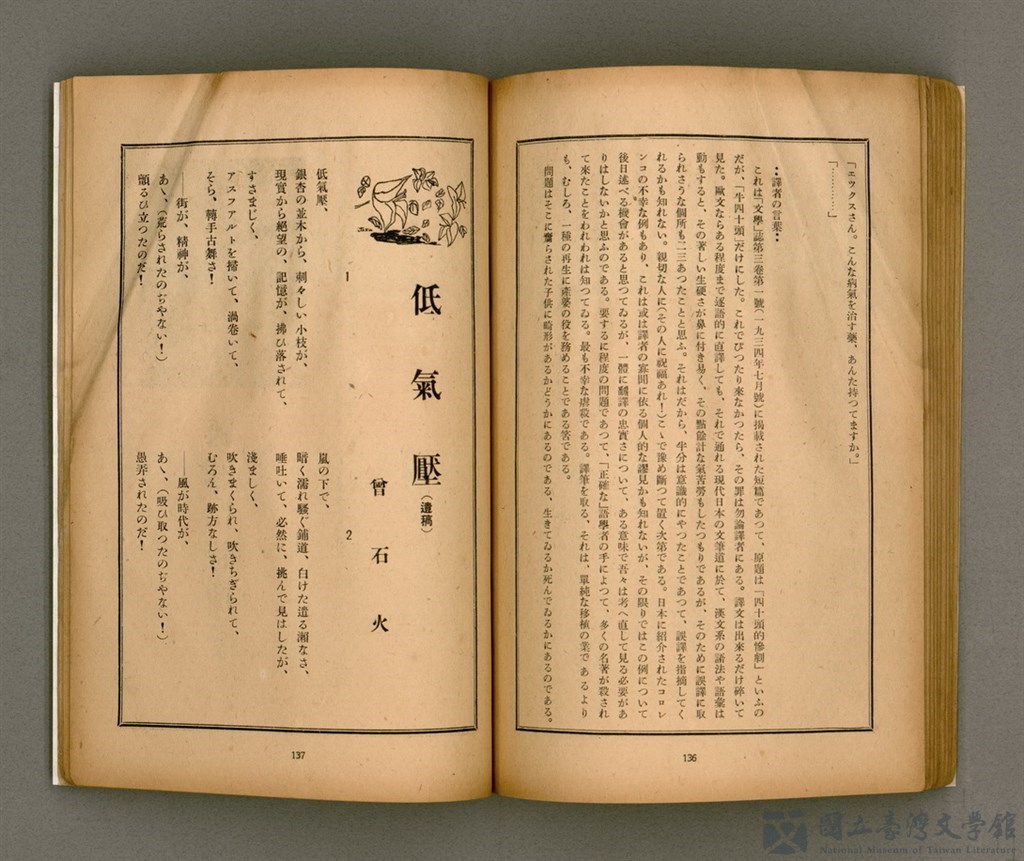 「エックスさん。こんな病氣を治す藥、あんた持つてますか。」
「…………」
：譯者の言葉：
これは『文學』誌第三卷第一號（一九三四年七月號）に揭載された短篇であつて、原題は「四十頭的慘劇」といふの
だが、「牛四十頭」だけにした。これでぴつたり來なかつたら、その罪は勿論譯者にある。譯文は出來るだけ碎いて
見た。歐文ならある程度まで逐語的に直譯しても、それで通れる現代日本の文筆道に於て、漢文系の語法や語彙は
動もすると、その著しい生硬さが鼻に付き易く、その點餘計な氣苦勞もしたつもりであるが、そのために誤譯に取
られさうな個所も二三あつたことと思ふ。それはだから、半分は意識的にやつたことであつて、誤譯を指摘してく
れるかも知れない。親切な人に（その人に祝福あれ！）こゝで豫め斷つて置く次第である。日本に紹介されたココレ
ンコの不幸な例もあり、これは或は譯者の寡聞に依る個人的な謬見かも知れないが、その限りではこの例について
後日述べる機會があると思つてゐるが、一體に飜譯の忠實さについて、ある意味で吾々は考へ直して見る必要があ
りはしないかと思ふのである。要するに程度の問題であつて、「正確な」語學者の手によつて、多くの名著が殺され
て來たことをわれわれは知つてゐる。最も不幸な虐殺である。譯筆を取る、それは、單純な移植の業であるより
も、むしろ、一種の再生に產婆の役を務めることである筈である。
問題はそこに齎らされた子供に畸形があるかどうかにあるのである、生きてゐるか死んでゐるかにあるのである。
136
低氣壓（遺稿）
曾石火
1
低氣壓、
銀杏の並木から、刺々しい小枝が、
現實から絕望の、記憶が、拂ひ落されて、
すさまじく、
アスフアルトを掃いて、渦卷いて、
そら、轉手古舞さ！
――街が、精神が、
あゝ、（荒らされたのぢやない！）
顫るひ立つたのだ！
2
嵐の下で、
暗く濡れ騷ぐ鋪道、白けた遣る瀨なさ、
唾吐いて、必然に、挑んで見はしたが、
淺ましく、
吹きまくられ、吹きちぎられて、
むろん、跡方なしさ！
――風が時代が、
あゝ、（吸ひ取つたのぢやない！）
愚弄されたのだ！
137
國立臺灣文學館
National Museum of Taiwan Literature